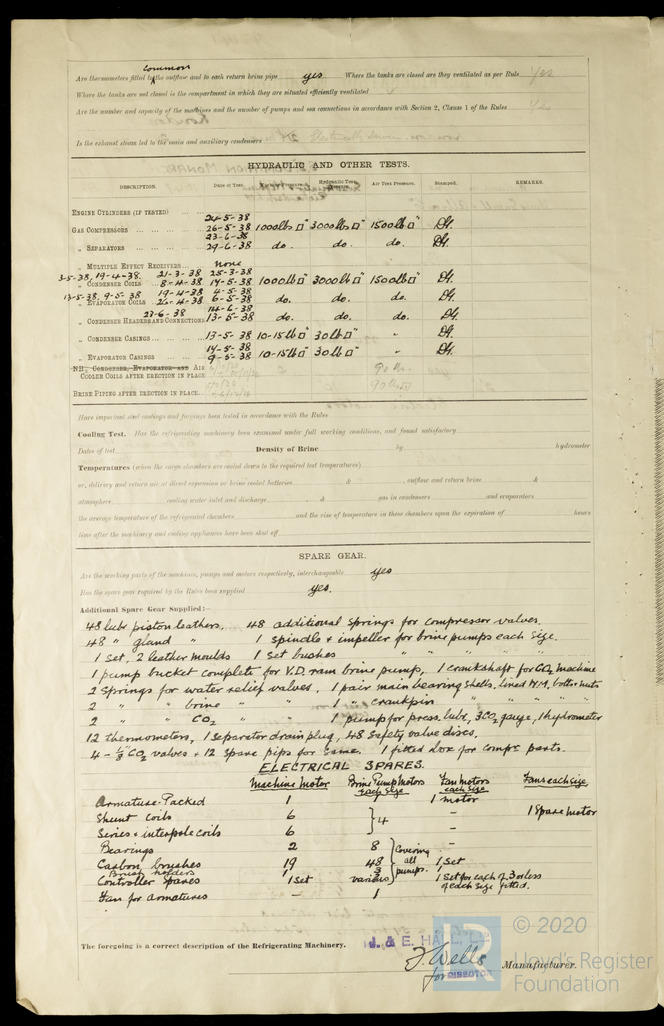 common
Are thermometers fitted to the outflow and to each return brine pipe yes Where the tanks are closed are they ventilated as per Rule Yes
Where the tanks are not closed is the compartment in which they are situated efficiently ventilated
Are the number and capacity of the machines and the number of pumps and sea connections in accordance with Section 2, Clause 1 of the Rules Yes
Is the exhaust steam led to the main and auxiliary condensers
HYDRAULIC AND OTHER TESTS.
DESCRIPTION. Date of Test. Hydraulic Test Air Test Pressure. Stamped. REMARKS.
ENGINE CYLINDERS (IF TESTED) 24-5-38
GAS COMPRESSORS 26-5-38 1000 lbs □" 3000 lbs □" 1500 lb □" DH.
23-6-38
„ SEPARATORS 29-6-38 do. do. do. DH.
„ MULTIPLE EFFECT RECEIVERS None
3-5-38, 19-4-38. 21-3-38 25-3-38
„ CONDENSER COILS 8-4-38 14-5-38 1000 lb □" 3000 lb □" 1500 lb □" DH.
13-5-38, 9-5-38 19-4-38 4-5-38
„ EVAPORATOR COILS 26-4-38 6-5-38 do. do. do. DH.
23-6-38 14-6-38
„ CONDENSER HEADERS AND CONNECTIONS 13-5-38 do. do. do. DH.
„ CONDENSER CASINGS 13-5-38 10-15 lb □" 30 lb □" " DH.
14-5-38
„ EVAPORATOR CASINGS 9-5-38 10-15 lb □" 30 lb □" " DH.
NH3 CONDENSER, EVAPORATOR AND AIR
COOLER COILS AFTER ERECTION IN PLACE 90 lb.
BRINE PIPING AFTER ERECTION IN PLACE 90 lb □"
Have important steel castings and forgings been tested in accordance with the Rules
Cooling Test. Has the refrigerating machinery been examined under full working conditions, and found satisfactory
Dates of test Density of Brine by hydrometer
Temperatures (when the cargo chambers are cooled down to the required test temperatures)
or, delivery and return air at direct expansion or brine cooled batteries & , outflow and return brine &
atmosphere cooling water inlet and discharge & gas in condensers and evaporators
the average temperature of the refrigerated chambers and the rise of temperature in these chambers upon the expiration of hours
time after the machinery and cooling appliances have been shut off
SPARE GEAR.
Are the working parts of the machines, pumps and motors respectively, interchangeable yes
Has the spare gear required by the Rules been supplied yes.
Additional Spare Gear Supplied:—
48 lube piston leathers, 48 additional springs for compressor valves.
48 " gland " 1 spindle & impeller for brine pumps each size.
1 set, 2 leather moulds 1 set bushes " " " " "
1 pump bucket complete for V.D. ram brine pump, 1 crankshaft for CO2 machine
2 springs for water relief valves. 1 pair main bearing shells, lined W.M. bolts & nuts
2 " " brine " " 1 " crankpin " " " " "
2 " " CO2 " " 1 pump for press. lube, 3 CO2 gauge, 1 hydrometer
12 thermometers, 1 separator drain plug, 48 safety valve discs.
4 - 1/3 CO2 valves + 12 spare pips for same. 1 fitted box for compr parts.
ELECTRICAL SPARES.
Machine Motor Brine Pump Motors each size Fan Motors each size Fans each size
Armature-Packed 1 1 motor
Shunt coils 6 } 4 - 1 Spare motor
Series & interpole coils 6 -
Bearings 2 8 } Covering all pumps. -
Carbon brushes 19 48 1 set
Brush holders 1 3
Controller spares 1 set various 1 set for each of 3 or less of each size fitted.
Fan for armatures - 1
The foregoing is a correct description of the Refrigerating Machinery.
J. & E. HALL, LTD
F. Wells Manufacturer.
for DIRECTOR
LR
© 2020
Lloyd's Register
Foundation